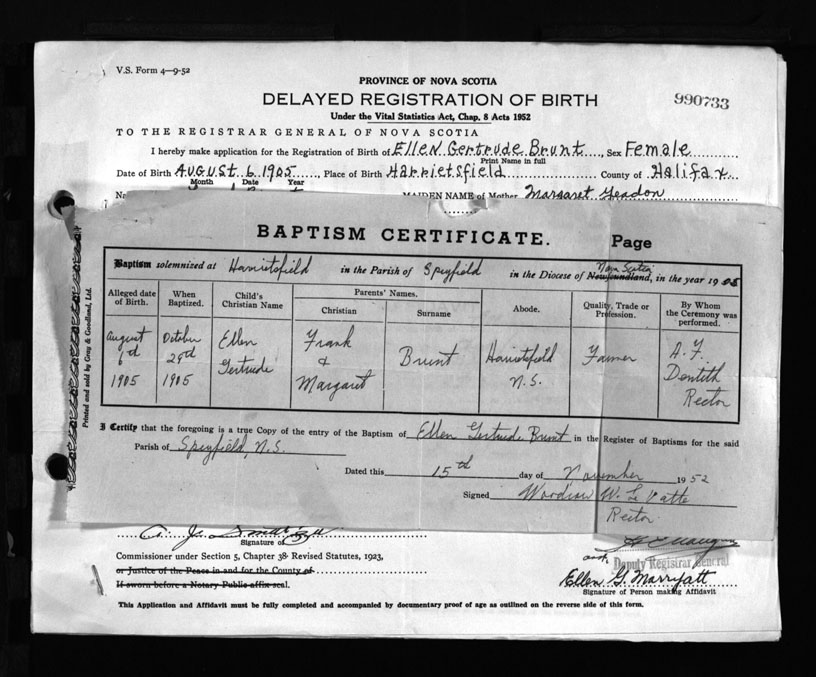 V.S. Form 4—9-52
PROVINCE OF NOVA SCOTIA
DELAYED REGISTRATION OF BIRTH
990733
Under the Vital Statistics Act, Chap. 8 Acts 1952
TO THE REGISTRAR GENERAL OF NOVA SCOTIA
I hereby make application for the Registration of Birth of Ellen Gertrude Brunt, Sex Female
Print Name in full
Date of Birth August 6 1905, Place of Birth Harrietsfield County of Halifax
Month Date Year
MAIDEN NAME of Mother Margaret
BAPTISM CERTIFICATE. Page
Baptism solemnized at Harrietsfield in the Parish of Spryfield in the Diocese of Newfoundland, Nova Scotia in the year 1905
Alleged date of Birth. When Baptized. Child's Christian Name Parents' Names. Christian Surname Abode. Quality, Trade or Profession. By Whom the Ceremony was performed.
August October Ellen Frank A. F.
6d 29d Gertrude & Brunt Harrietsfield Farmer Dentith
1905 1905 Margaret N.S. Rector
Printed and sold by Gray & Goodland, Ltd.
I Certify that the foregoing is a true Copy of the entry of the Baptism of Ellen Gertrude Brunt in the Register of Baptisms for the said
Parish of Spryfield, N.S.
Dated this 15th day of November 1952
Signed W. Le Vatte
Rector
A. J.
Signature of
Commissioner under Section 5, Chapter 38 Revised Statutes, 1923,
or Justice of the Peace in and for the County of
If sworn before a Notary Public affix seal.
and
Deputy Registrar General
Ellen G. Marryatt
Signature of Person making Affidavit
This Application and Affidavit must be fully completed and accompanied by documentary proof of age as outlined on the reverse side of this form.